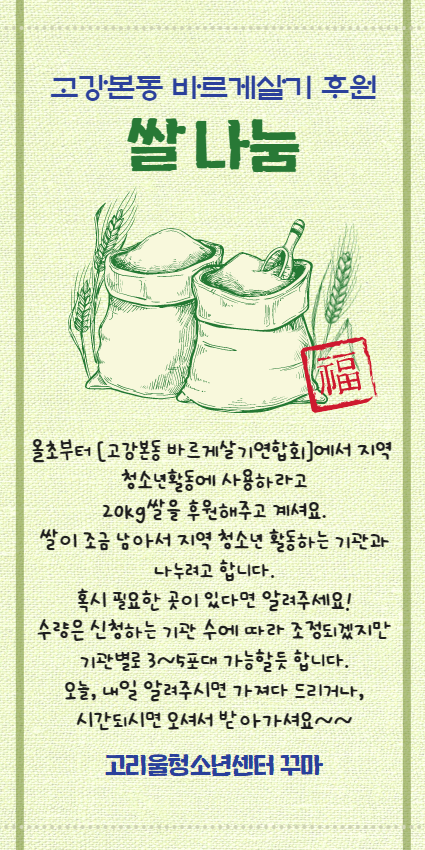 고강본동 바르게살기 후원
쌀 나눔
福
올초부터 [고강본동 바르게살기연합회]에서 지역
청소년활동에 사용하라고
20kg쌀을 후원해주고 계셔요.
쌀이 조금 남아서 지역 청소년 활동하는 기관과
나누려고 합니다.
혹시 필요한 곳이 있다면 알려주세요!
수량은 신청하는 기관 수에 따라 조정되겠지만
기관별로 3~5포대 가능할듯 합니다.
오늘, 내일 알려주시면 가져다 드리거나,
시간되시면 오셔서 받아가셔요~~
고리울청소년센터 꾸마